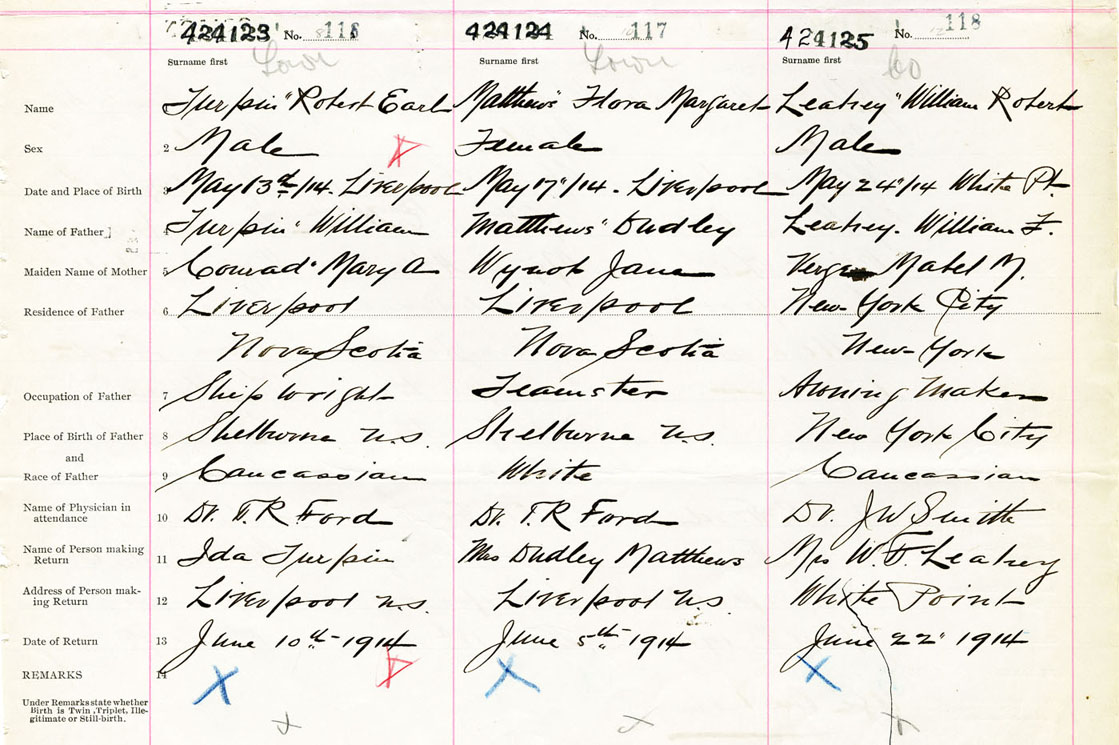 424123 No. 116 424124 No. 117 424125 No. 118
Surname first Town Surname first Town Surname first Co
Name Turpin" Robert Earl Matthews" Flora Margaret Leahey" William Robert
Sex 2 Male Female Male
Date and Place of Birth 3 May 13th/14. Liverpool May 17"/14. Liverpool May 24"/14 White Pt.
Name of Father 4 Turpin" William Matthews" Dudley Leahey. William F.
Maiden Name of Mother 5 Conrad" Mary A Wynot Jane Verge Mabel M.
Residence of Father 6 Liverpool Liverpool New York City
Nova Scotia Nova Scotia New-York
Occupation of Father 7 Ship wright Teamster Awning Maker
Place of Birth of Father 8 Shelburne N.S. Shelburne N.S. New York City
and
Race of Father 9 Caucassian White Caucassian
Name of Physician in
attendance 10 Dr. T.R Ford Dr. T.R Ford Dr. J W Smith
Name of Person making
Return 11 Ida Turpin Mrs Dudley Matthews Mrs W. F. Leahey
Address of Person mak-
ing Return 12 Liverpool N.S. Liverpool N.S. White Point
Date of Return 13 June 10th 1914 June 5th 1914 June 22" 1914
REMARKS 14 X X X
Under Remarks state whether
Birth is Twin, Triplet, Ille-
gitimate or Still-birth.